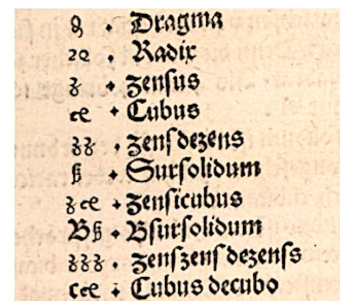 · Dragma
· Radix
ʒ · zensus
ce · Cubus
ʒʒ · zensdezens
ß · Sursolidum
ʒce · zensicubus
Bß · Bsursolidum
ʒʒʒ · zenszensdezenss
cce · Cubus decubo